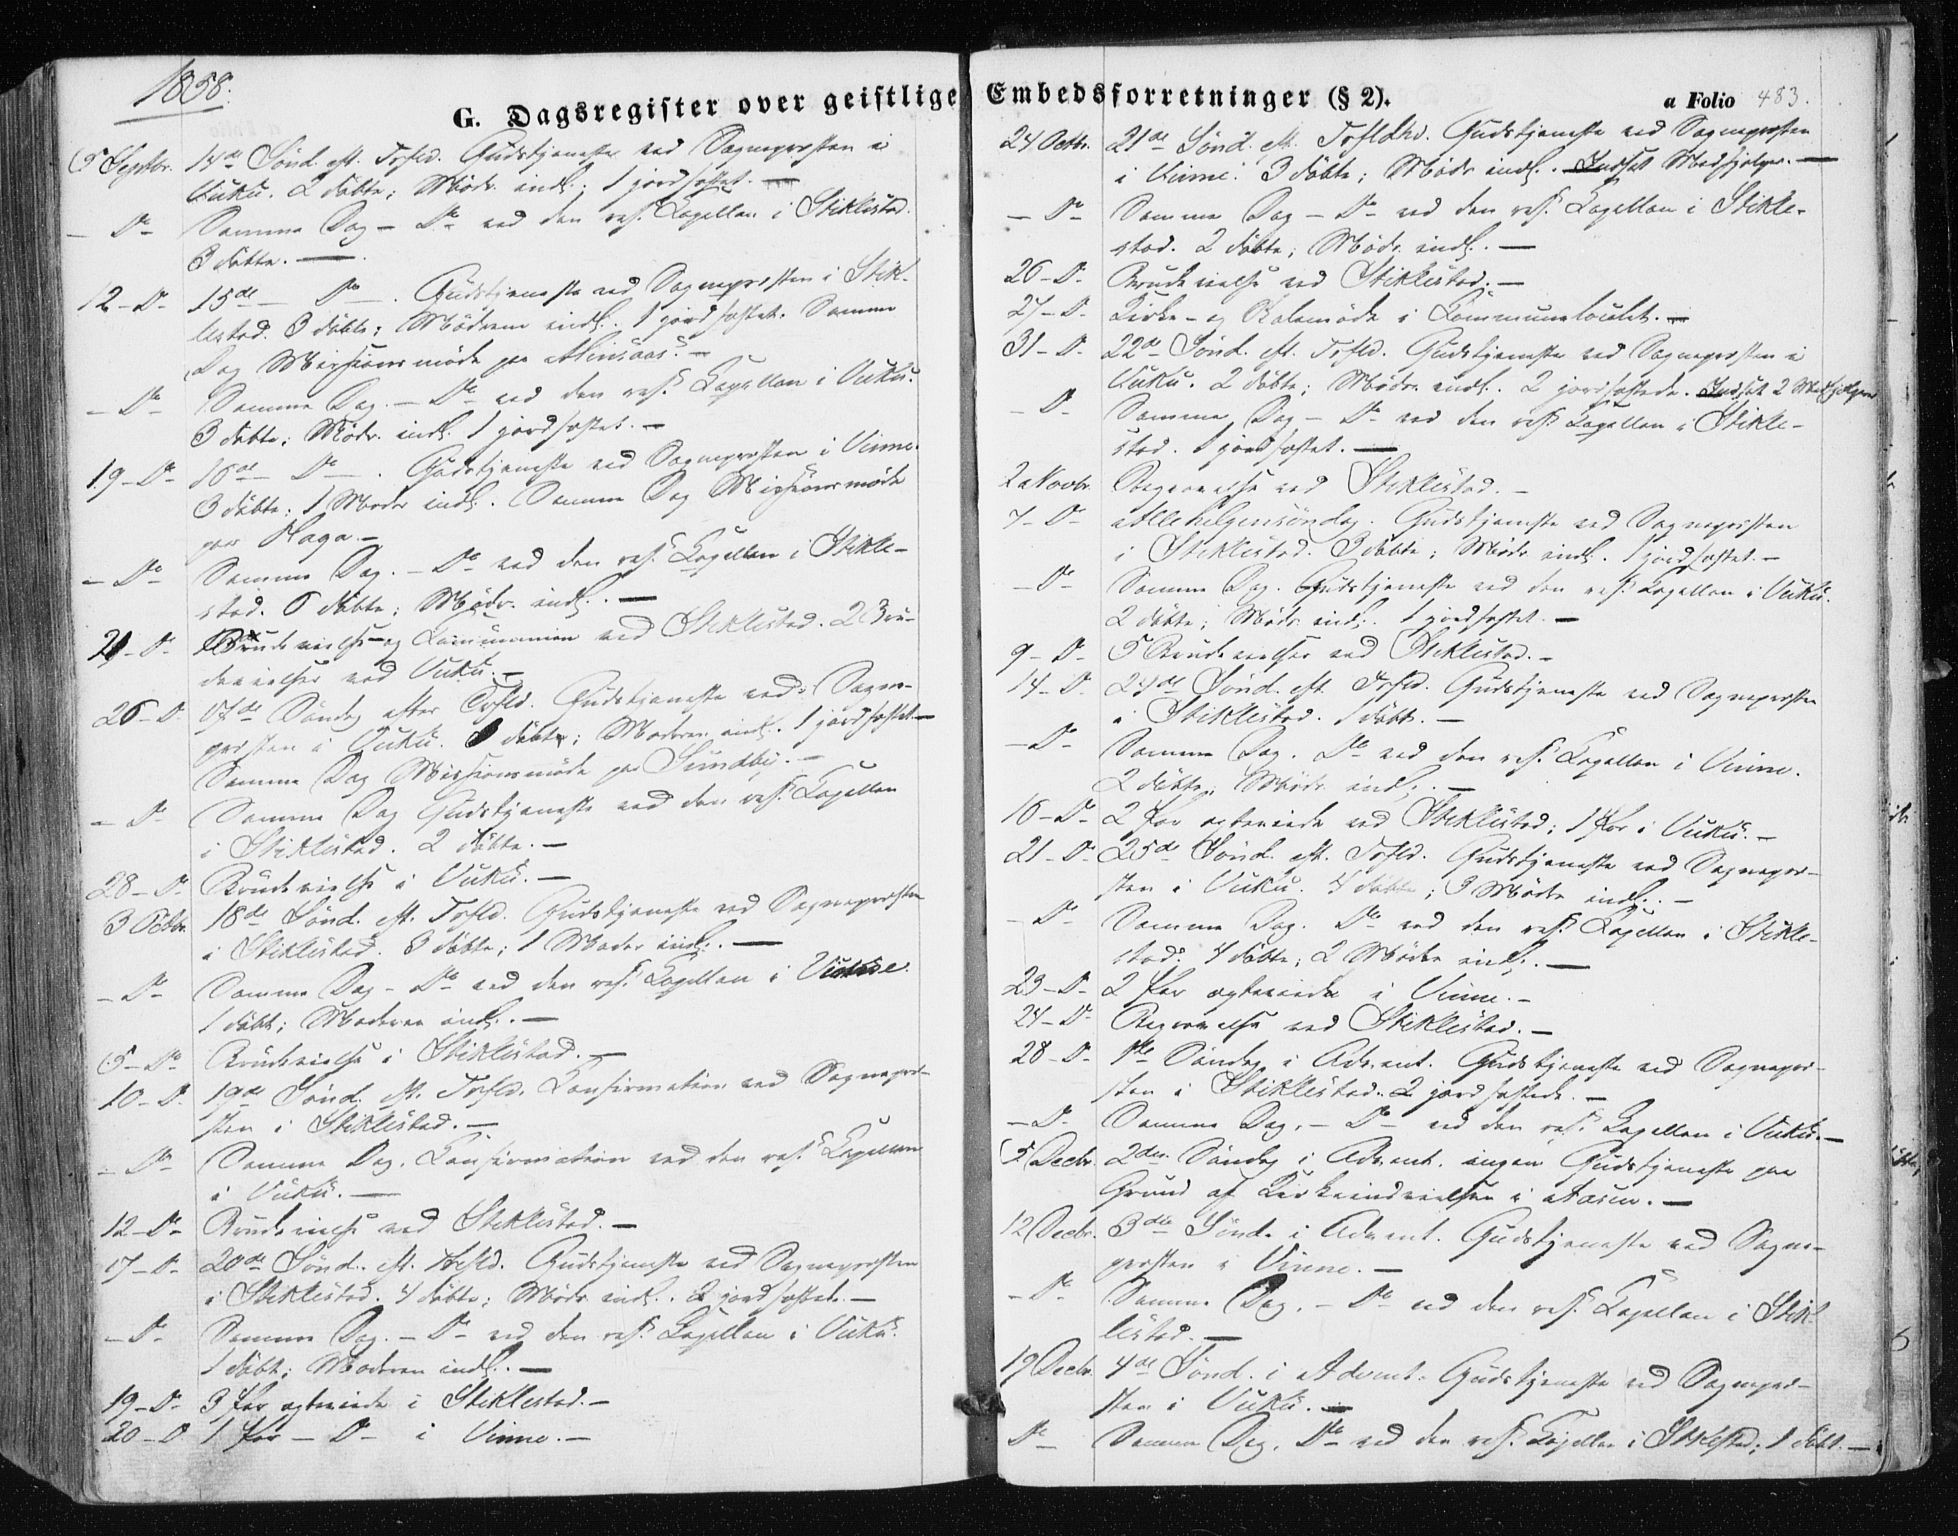 1858.
G. Dagsregister over geistlige Embedsforretninger (§ 2).
a Folio 483.
5 Septbr. 14de Sönd. eft. Trfld. Gudstjeneste ved Sognepresten i
Vuku. 2 döbte; Mödr. indl.; 1 jordfæstet. —
— Do — Samme Dag — Do ved den res. Capellan i Stiklestad.
3 döbte. —
12 — Do 15de — Do —. Gudstjeneste ved Sognepresten i Stik-
lestad. 3 döbte; Mödrene indl. 1 jordfæstet. Samme
Dag Missionsmöde paa Minsaas. —
— Do — Samme Dag. — Do ved den res. Capellan i Vuku.
3 döbte; Mödr. indl. 1 jordfæstet. —
19 — Do 16de — Do —. Gudstjeneste ved Sognepresten i Vinne.
3 döbte; 1 Moder indl. Samme Dag Missionsmöde
paa Haga. —
— Do — Samme Dag. — Do ved den res. Capellan i Stikle-
stad. 6 döbte; Mödr. indl. —
21 — Do Brudevielse og Communion ved Stiklestad. 2 Bru-
devielser ved Vuku. —
26 — Do 17de Söndag efter Trfld. Gudstjeneste ved Sogne-
presten i Vuku. döbt; Moderen indl. 1 jordfæstet —
Samme Dag Missionsmöde paa Sundby. —
— Do — Samme Dag Gudstjeneste ved den res. Capellan
i Stiklestad. 2 döbte. —
28 — Do Brudevielse i Vuku. —
3 Octbr. 18de Sönd. eft. Trfld. Gudstjeneste ved Sognepresten
i Stiklestad. 3 döbte; 1 Moder indl. —
— Do — Samme Dag — Do ved den res. Capellan i Vinne.
1 döbt; Moderen indl. —
5 — Do Brudevielse i Stiklestad. —
10 — Do 19de Sönd. eft. Trfld. Confirmation ved Sognepre-
sten i Stiklestad. —
— Do — Samme Dag. Confirmation ved den res. Capellan
i Vuku. —
12 — Do Brudevielse ved Stiklestad. —
17 — Do 20de Sönd. eft. Trfld. Gudstjeneste ved Sognepresten
i Stiklestad. 4 döbte; Mödr. indl. 2 jordfæstede. —
— Do — Samme Dag. — Do ved den res. Capellan i Vuku.
1 döbt; Moderen indl. —
19 — Do 3 Par ægteviede i Stiklestad. —
20 — Do 1 Par — Do — i Vinne. —
24 Octbr. 21de Sönd. eft. Trfldhd. Gudstjeneste ved Sognepresten
i Vinne. 3 döbte; Mödr. indl. Indsat Medhjelper. —
— Do — Samme Dag — Do ved den res. Capellan i Stikle-
stad. 2 döbte; Mödr. indl. —
26 — Do Brudevielse ved Stiklestad. —
27 — Do Kirke- og Skolemöde i Communelocalet. —
31 — Do 22de Sönd. eft. Trfld. Gudstjeneste ved Sognepresten i
Vuku. 2 döbte; Mödr. indl. 2 jordfæstede. Indsat 2 Medhjelpere
— Do — Samme Dag — Do ved den res. Capellan i Stikle-
stad. 1 jordfæstet. —
2 Novbr. Begravelse ved Stiklestad. —
7 — Do Allehelgensöndag. Gudstjeneste ved Sognepresten
i Stiklestad. 3 döbte; Mödr. indl. 1 jordfæstet. —
— Do Samme Dag. Gudstjeneste ved den res. Capellan i Vuku.
2 döbte; Mödr. indl. 1 jordfæstet. —
9 — Do 5 Brudevielser ved Stiklestad. —
14 — Do 24de Sönd. eft. Trfld. Gudstjeneste ved Sognepresten
i Stiklestad. 1 döbt. —
— Do — Samme Dag. Do ved den res. Capellan i Vinne.
2 döbte; Mödr. indl. —
16 — Do 2 Par ægteviede ved Stiklestad; 1 Par i Vuku. —
21 — Do 25de Sönd. eft. Trfld. Gudstjeneste ved Sognepre-
sten i Vuku. 4 döbte; 3 Mödre indl. —
— Do — Samme Dag. Do ved den res. Capellan i Stikle-
stad. 4 döbte; 2 Mödre indl. —
23 — Do 2 Par ægteviede i Vinne. —
24 — Do Begravelse ved Stiklestad. —
28 — Do 1ste Söndag i Advent. Gudstjeneste ved Sognepre-
sten i Stiklestad. 2 jordfæstede. —
— Do Samme Dag. — Do — ved den res. Capellan i Vuku. —
5 Decbr. 2den Söndag i Advent. ingen Gudstjeneste paa
Grund af Kirkeindvielsen i Aasen. —
12 Decbr. 3die Sönd. i Advent. Gudstjeneste ved Sogne-
presten i Vinne. —
— Do Samme Dag. — Do ved den res. Capellan i Stik-
lestad. —
19 Decbr. 4de Sönd. i Advent. Gudstjeneste ved Sognepre-
sten i Vuku. —
Do — Samme Dag. Do ved den res. Capellan i Stiklestad; 1 döbt. —